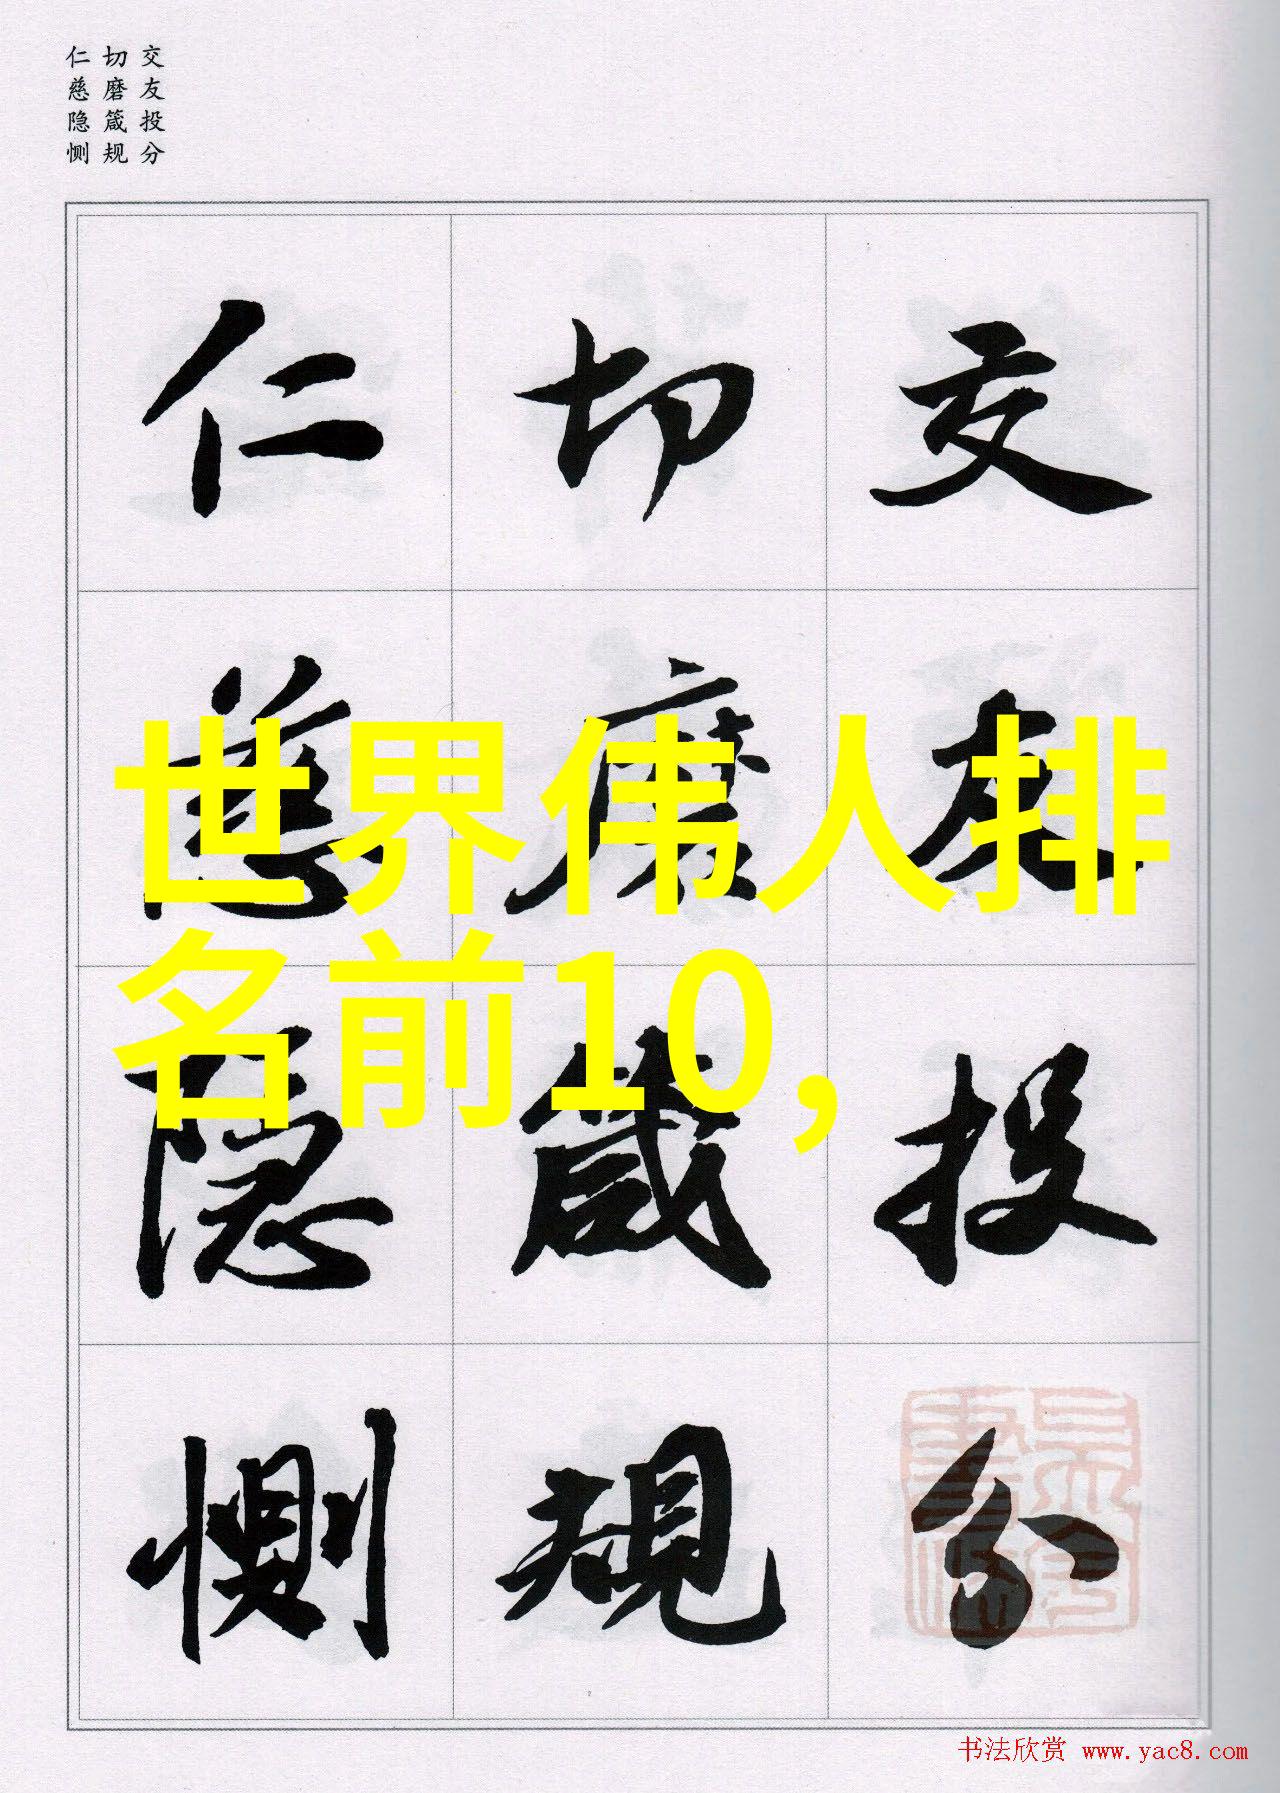 交友投分
切磨箴规
仁慈隐恻
交友投分
切磨箴规
仁慈隐恻
世界伟人排
名前10,
书法欣赏 www.yac8.com